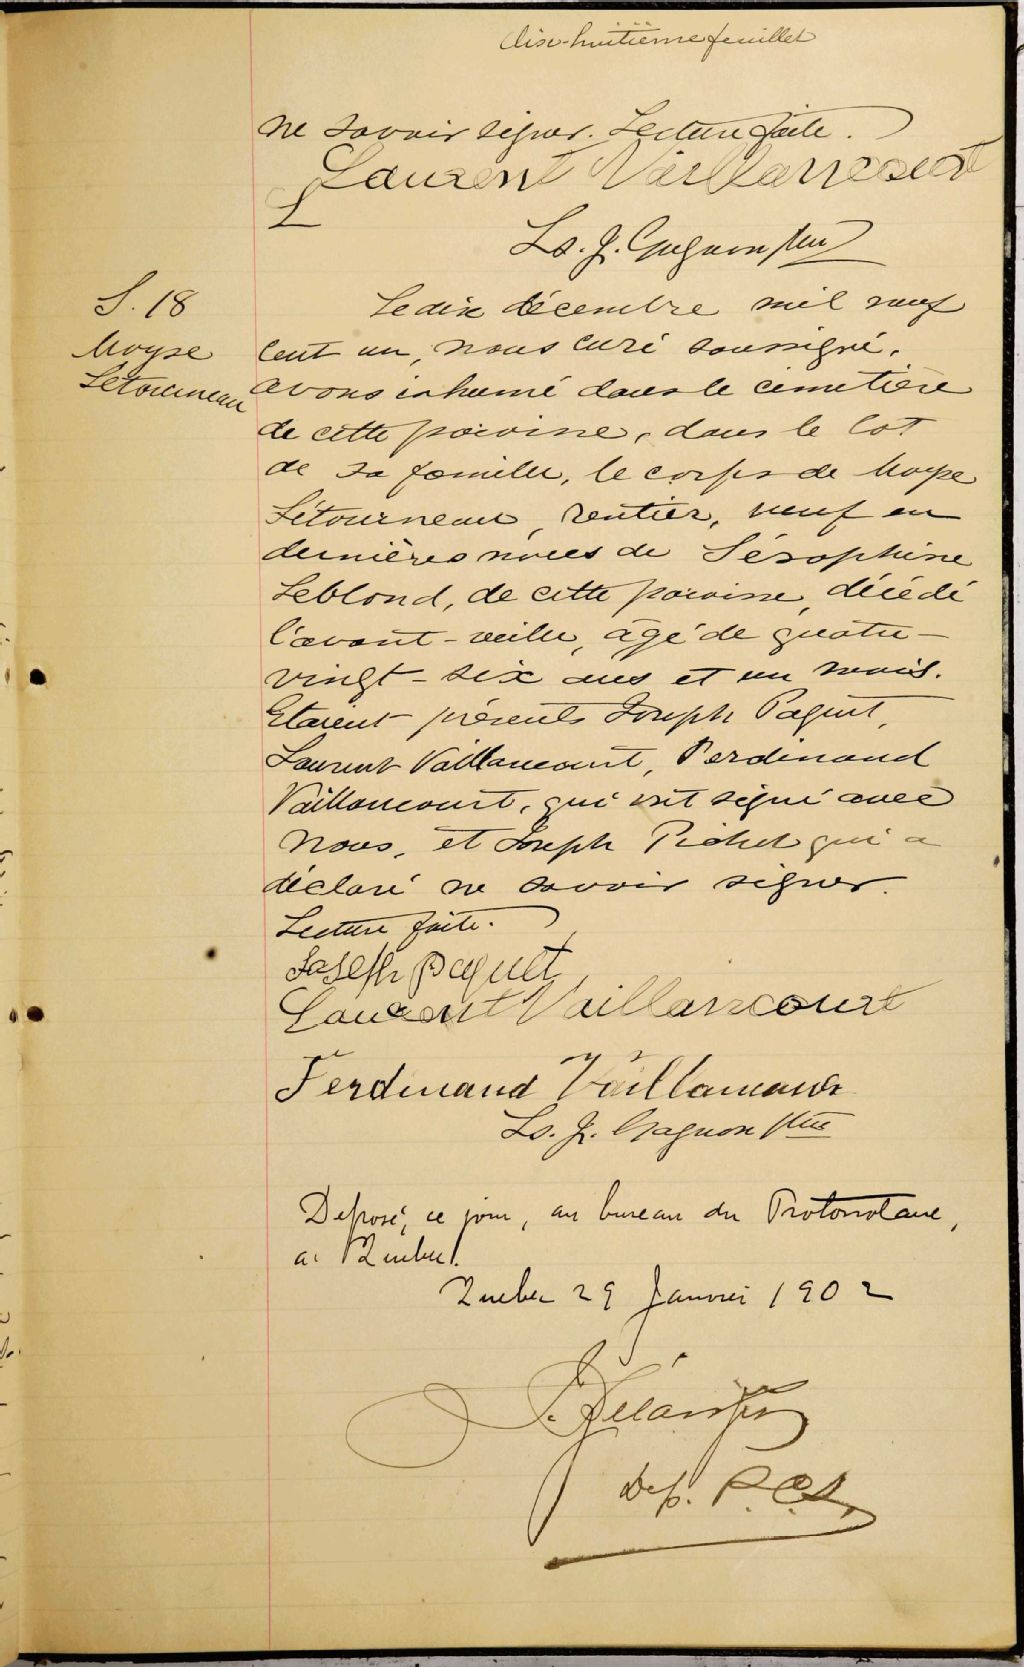 dix-huitième feuillet
ne savoir signer. Lecture faite.
Laurent Vaillancourt
Ls. J. Gagnon ptre
S. 18
Moyse
Létourneau
Le dix décembre mil neuf
cent un, nous curé soussigné,
avons inhumé dans le cimetière
de cette paroisse, dans le lot
de sa famille, le corps de Moyse
Létourneau, rentier, veuf en
dernières noces de Séraphine
Leblond, de cette paroisse, décédé
l'avant-veille, âgé de quatre-
vingt-six ans et un mois.
Etaient présents Joseph Paquet,
Laurent Vaillancourt, Ferdinand
Vaillancourt, qui ont signé avec
nous, et Joseph Pichet qui a
déclaré ne savoir signer.
Lecture faite.
Joseph Paquet
Laurent Vaillancourt
Ferdinand Vaillancourt
Ls. J. Gagnon ptre
Déposé, ce jour, au bureau du Protonotaire,
à Québec.
Québec 29 Janvier 1902
Dep. P. C. S.